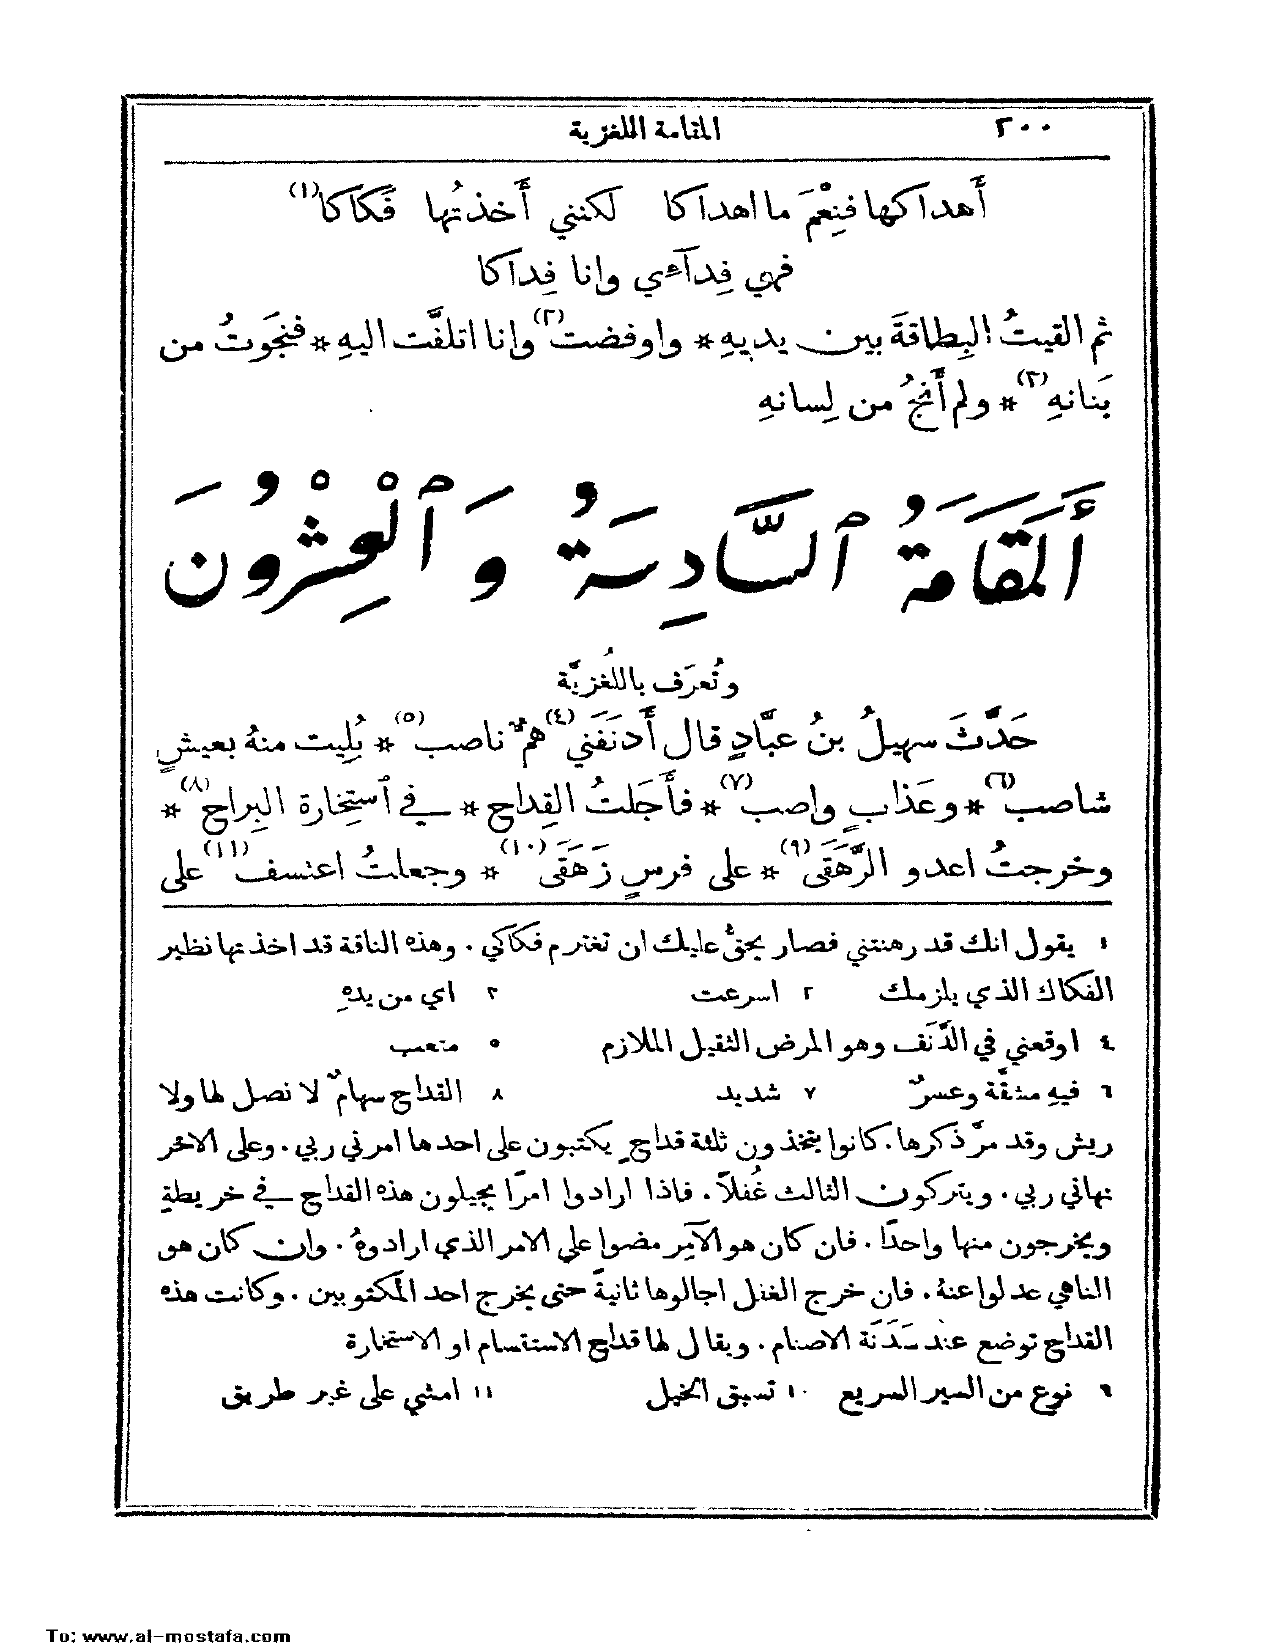 ٢٠٠ المقامة اللغزية
أَهداكها فنِعْمَ ما اهداكا لكنني أَخذتُها فَكاكا(١)
فهي فِدآءي وانا فِداكا
ثم القيتُ البِطاقةَ بين يديهِ * واوفضت(٢) وانا اتلفَّت اليهِ * فنجَوتُ من
بَنانهِ(٣) * ولم أَنجُ من لِسانهِ
أَلمَقَامَةُ ٱلسَّادِسَةُ وَٱلْعِشْرُونَ
وتُعرَف باللُغزيَّة
حَدَّثَ سهيلُ بنُ عبَّادٍ قال أَدنَفَني(٤) همٌّ ناصب(٥) * بُلِيت منهُ بعيشٍ
شاصب(٦) * وعَذابٍ واصب(٧) * فأَجَلتُ القِداح * في ٱستِخارة البِراح(٨) *
وخرجتُ اعدو الرَّهَقَى(٩) * على فرسٍ زَهَقَى(١٠) * وجعلتُ اعتسف(١١) على
١ يقول انك قد رهنتني فصار يحقُّ عليك ان تغترم فكاكي . وهذه الناقة قد اخذتها نظير
الفكاك الذي يلزمك ٢ اسرعت ٣ اي من يدهِ
٤ اوقعني في الدَّنَف وهو المرض الثقيل الملازم ٥ متعب
٦ فيهِ مشقَّة وعسرٌ ٧ شديد ٨ القداح سهامٌ لا نصل لها ولا
ريش وقد مرَّ ذكرها . كانوا يتخذون ثلثة قداحٍ يكتبون على احدها امرني ربي . وعلى الاخر
نهاني ربي . ويتركون الثالث غُفلاً . فاذا ارادوا امرًا يجيلون هذه القداح في خريطةٍ
ويخرجون منها واحدًا . فان كان هو الآمر مضوا على الامر الذي ارادوهُ . وان كان هو
الناهي عدلوا عنهُ . فان خرج الغفل اجالوها ثانيةً حتى يخرج احد المكتوبين . وكانت هذه
القداح توضع عند سَدَنَة الاصنام . ويقال لها قداح الاستقسام او الاستخارة
٩ نوع من السير السريع ١٠ تسبق الخيل ١١ امشي على غير طريق
To: www.al-mostafa.com